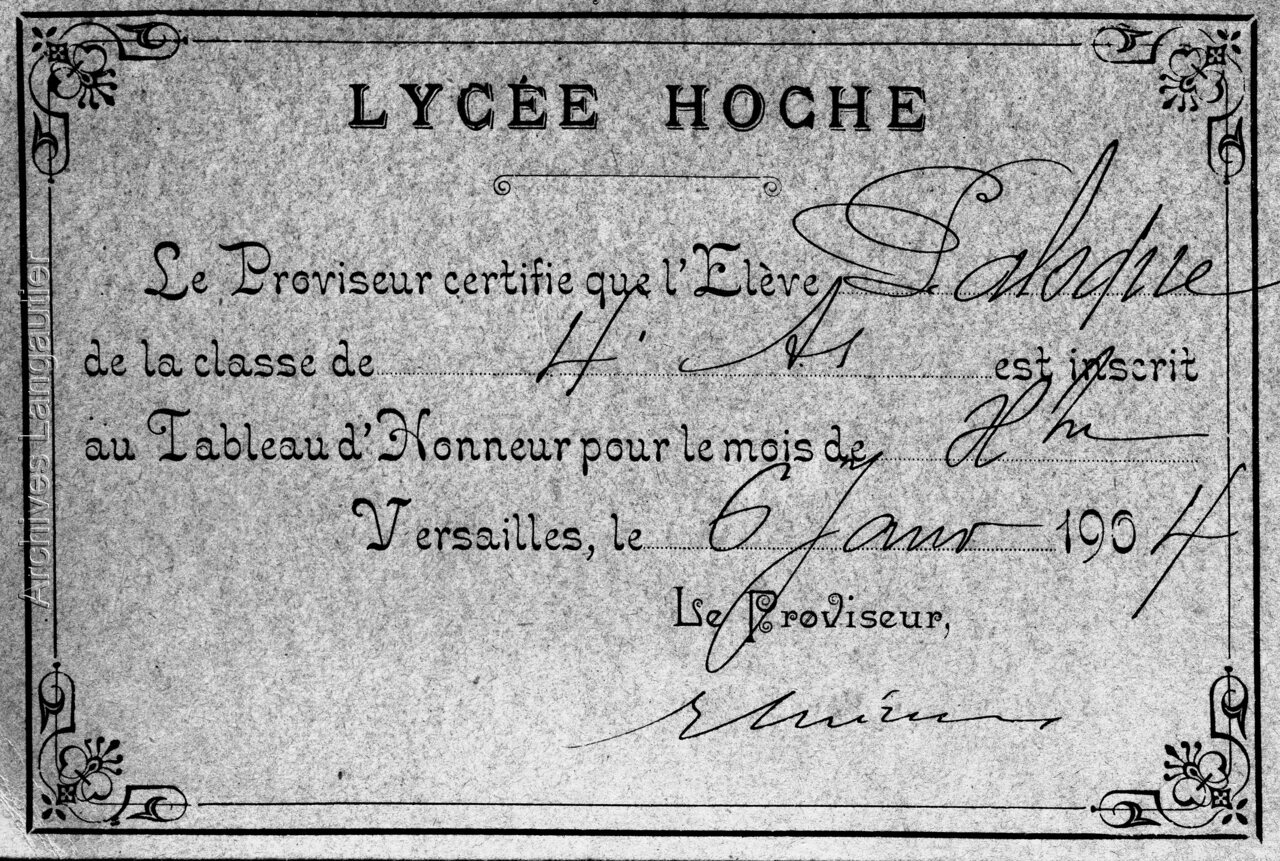 LYCÉE HOCHE
Le Proviseur certifie que l'Elève
de la classe de 4e A1 est inscrit
au Tableau d'Honneur pour le mois de Xbre
Versailles, le 6 Janv 1904
Le Proviseur,
Archives Langautier